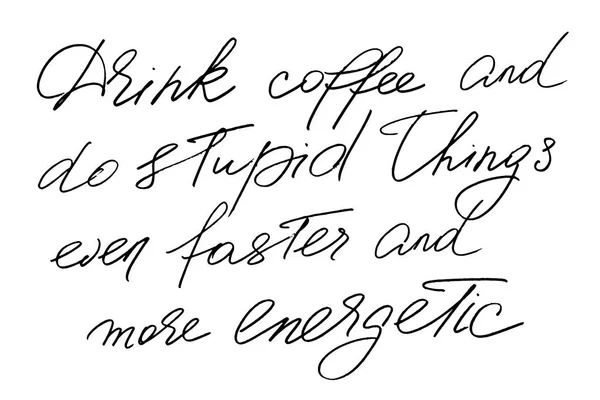 Drink coffee and
do stupid things
even faster and
more energetic